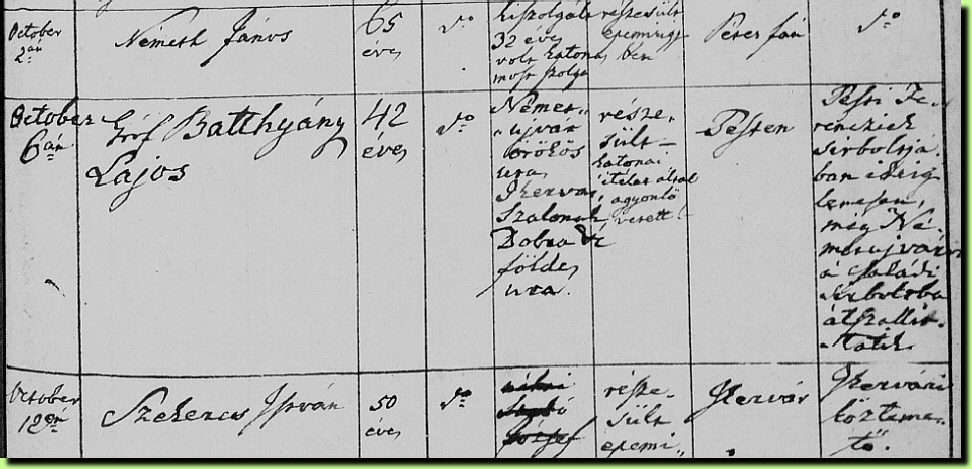 October
2án
Németh János
65
éves
do
kiszolgált
32 éves
volt katona
most szolga
részesült
Péterfán
do
October
6án
Gróf Batthyány
Lajos
42
éves
do
Német-
ujvár
örökös
ura
Ikervár,
Szalonak
Dobra st
földes
ura.
része-
sült
katonai
itélet által
agyonlö
vetett
Pesten
Pesti Fe-
rencziek
sirboltjá-
ban ideig
lenesen,
még Né-
metujvárra
a családi
sirboltba
átszállit-
tatik
October
12én
Szekeres István
50
éves
do
József
része-
sült
Ikervár
Ikervári
köz teme-
tő.